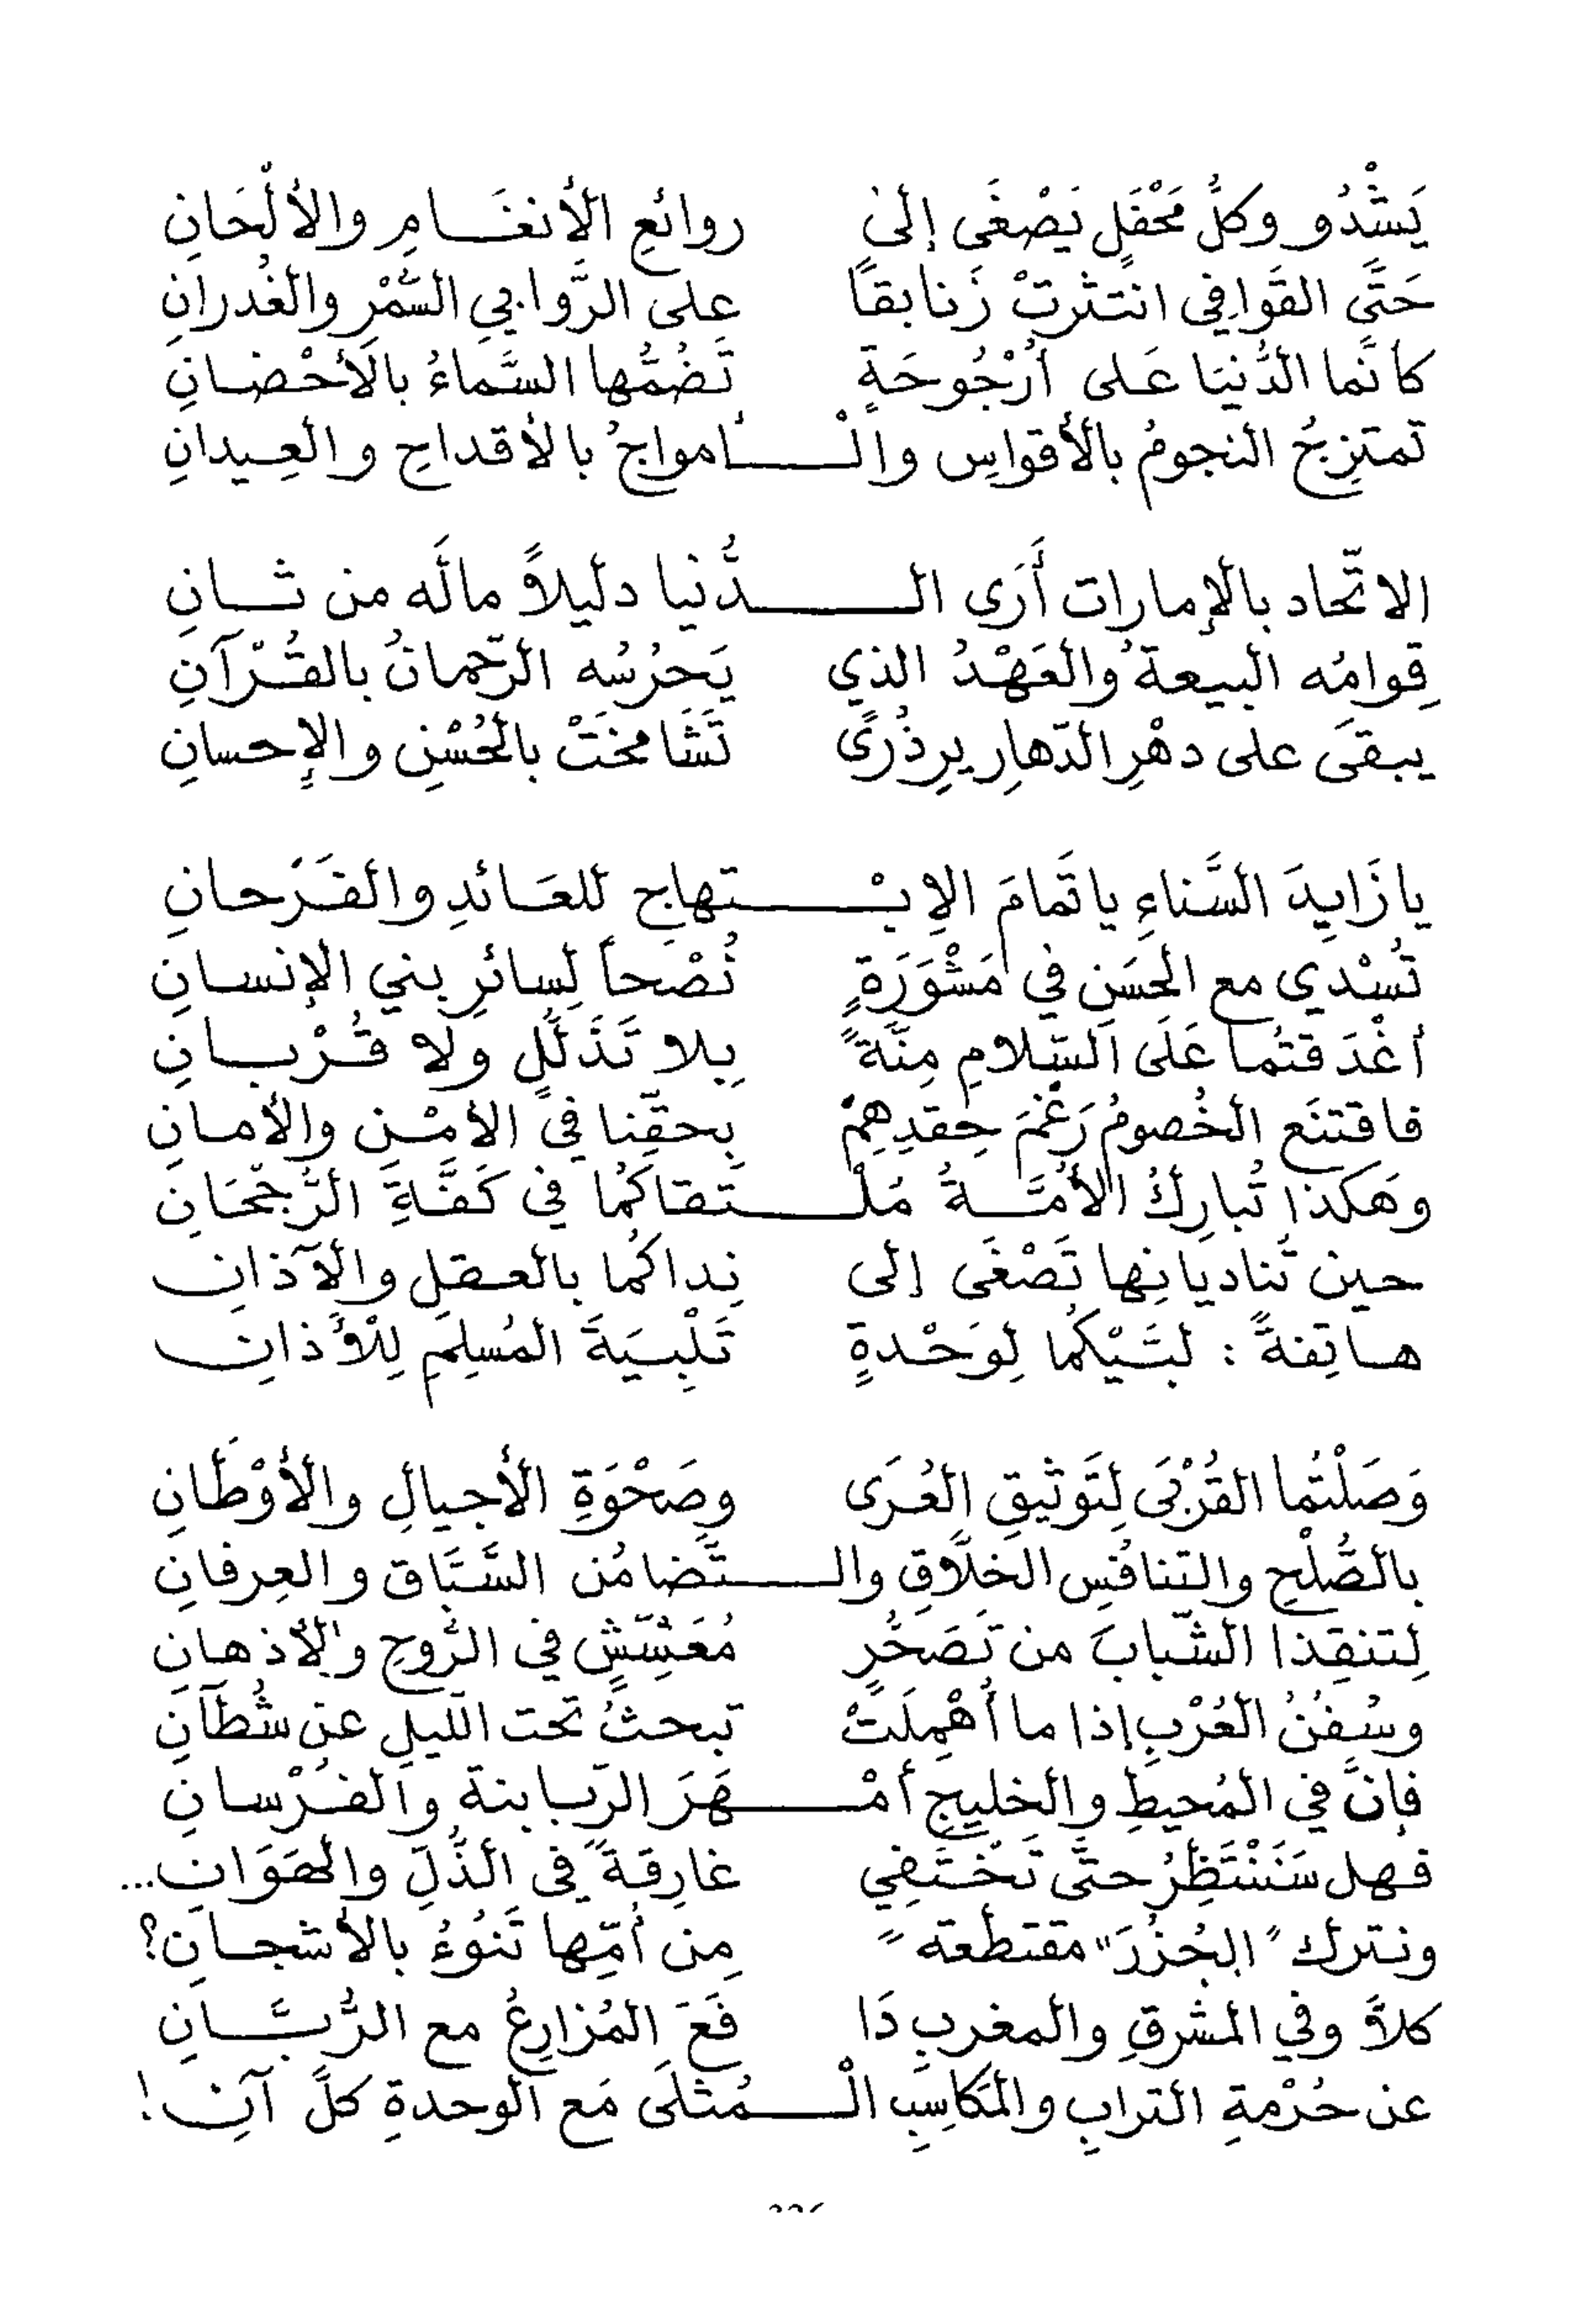 يَشْدُو وكلُّ مَحْفَلٍ يَصْغَى إلىٰ روائعِ الأنغَـــامِ والألْحَانِ
حَتَّى القَوَافِي انتثرتْ زَنابقًا على الرَّوابي السُّمْرِ والغُدرانِ
كأنَّما الدُّنيَا عَلى أُرْجُوحَةٍ تَضُمُّها السَّماءُ بالأحْضانِ
تمتزِجُ النجومُ بالأقواسِ والْــــأمواجُ بالأقداحِ والعِيدانِ
الاتّحاد بالإمارات أَرَى الــــــدُّنيا دليلاً مالَه من ثــانِ
قِوامُه البيعةُ والعَهْدُ الذي يَحرُسُه الرّحمانُ بالقُرْآنِ
يبقَى على دهْرِ الدّهاريرِ ذُرىً تَشَامخَتْ بالحُسْنِ والإحسانِ
يا زَايِدَ السَّناءِ يا تَمامَ الاِبْـــــتهاجِ للعَائدِ والفَرْحانِ
تُسْدي مع الحسَنِ في مَشْوَرَةٍ نُصْحاً لِسائرِ بني الإنسانِ
أغْدَقتُما عَلَى السّلامِ مِنَّةً بِلا تَذَلُّلٍ ولا قُرْبانِ
فاقتنَع الخُصومُ رَغْمَ حِقدِهِمْ بحقِّنا في الأمْنِ والأمانِ
وهَكذا تُبارِكُ الأمَّــةُ مُلْــــتَقاكُما في كَفَّةِ الرُّجْحَانِ
حين تُناديانِها تَصْغَى إلى نِداكُما بالعقلِ والآذانِ
هاتِفةً : لبَّيْكُما لِوَحْدةٍ تَلْبِيَةَ المُسلِمِ لِلْأذانِ
وَصَلْتُما القُرْبَى لِتَوثيقِ العُرَى وصَحْوَةِ الأجيالِ والأوْطَانِ
بالصُّلْحِ والتنافُسِ الخلَّاقِ والــــتَّضامُن السَّبَّاق والعِرفانِ
لِتنقِذا الشّبابَ من تَصَحُّرٍ مُعَشِّشٍ في الرُّوحِ والأذهانِ
وسُفنُ العُرْبِ إذا ما أُهْمِلَتْ تبحثُ تحت الليلِ عن شُطآنِ
فإنَّ في المُحيطِ والخليجِ أمْــــهَرَ الرّبابنةِ والفُرْسانِ
فهل سَنَنْتَظِرُ حتَّى تَخْتَفِي غارِقَةً في الذُّلِّ والهَوَانِ...
ونترك "الجُزُرَ" مقتطعةً مِن أُمِّها تَنُوءُ بالأشجانِ؟
كلاَّ وفي المشرقِ والمغربِ دَا فَعَ المُزارِعُ مع الرُّبَّــانِ
عن حُرْمةِ الترابِ والمَكاسِبِ الْــــمُثلَى مَع الوحدةِ كلَّ آنِ!